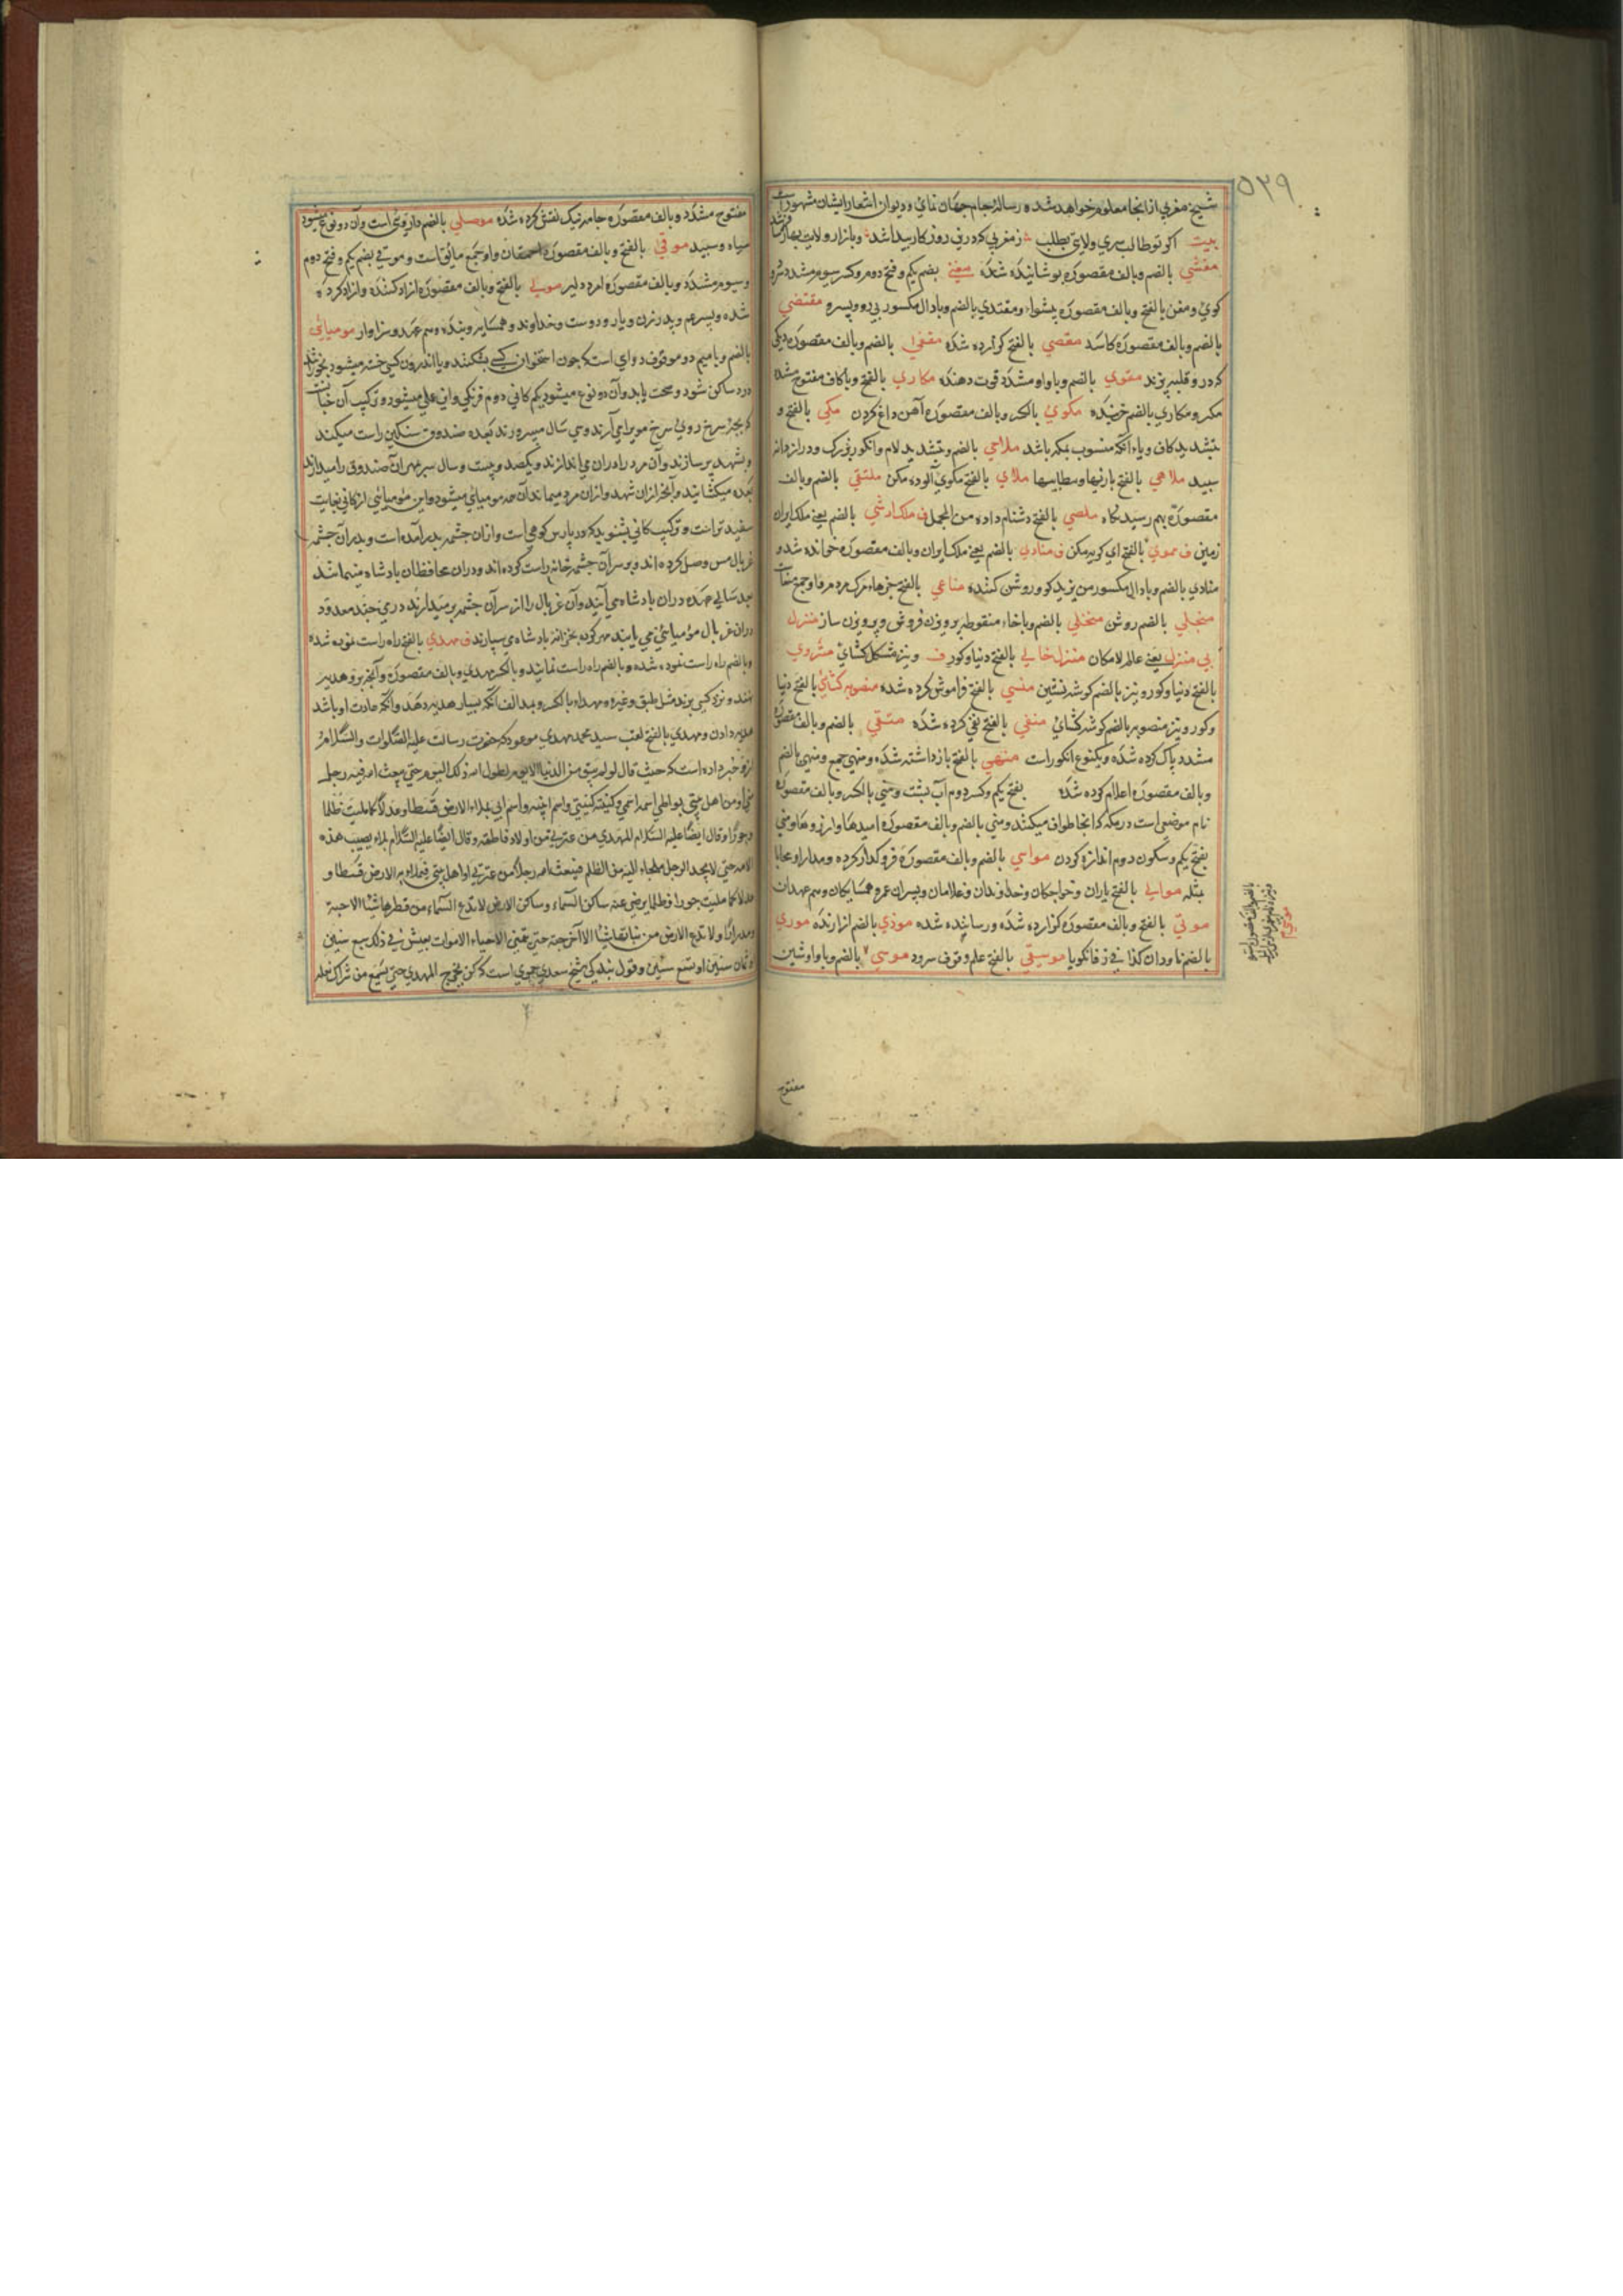 ۵۳۹
شیخ مغربی از انجا معلوم خواهد شد و رساله جام جهان نمای و دیوان اشعار ایشان مشهور است
بیت اکر تو طالب سری ولایتی بطلب
مغشی بالضم وبالف مقصوره پوشانیده شده مغنی بضم یکم وفتح دوم وکسر سیوم مشدد سرود
کوی ومغن بالفتح وبالف مقصوره پیشوا ومقتدی بالضم وبادال مکسور پی رو وپسرو مقتضی
بالضم وبالف مقصوره کاسد مقصی بالفتح کزارده شده مقفی بالضم وبالف مقصوره دیکی
که در و قلیه پزند مقوی بالضم وباواو مشدد قوت دهنده مکاری بالفتح وباکاف مفتوح مشدد
مکر ومکاری بالضم خربنده مکوی بالکسر وبالف مقصوره آهن داغ کردن مکی بالفتح و
بتشدید کاف ویاء آنکه منسوب بمکه باشد ملاحی بالضم وبتشدید لام وانکور بزرک ودراز دانه
سپید ملاهی بالفتح بازیها ملای بالفتح مکوی آلوده مکن ملتقی بالضم وبالف
مقصوره بهم رسیدنکاه ملصی بالفتح دشنام داده من المجمل ف ملک ارشی بالضم یعنی ملک ایران
زمین ف مموی بالفتح ای کریه مکن ف منادی بالضم یعنی ملک ایران وبالف مقصوره خوانده شده و
منادی بالضم وبادال مکسور من یزید کو وروشن کننده مناعی بالفتح خبرهاء مرک مردم
منجلی بالضم روشن منخلی بالضم وباخاء منقوطه پرویزن فروش وپرویزن ساز منزل
بی منزل یعنی عالم لامکان منزل خالی بالفتح دنیا وکور ف ونیز مشکل کشای منزوی
بالفتح دنیا وکور ونیز بالضم کوشه نشین منسی بالفتح فراموش کرده شده منصوبه کشای بالفتح دنیا
وکور ونیز منصوبه بالضم کوشه کشای منفی بالفتح نفی کرده شده منقی بالضم وبالف مقصوره
مشدد پاک کرده شده ویکنوع انکور است منهی بالفتح باز داشته شده ومنهی جمع ومنهی بالضم
وبالف مقصوره اعلام کرده شده بفتح یکم وکسر دوم آب پشت ومنی بالکسر وبالف مقصوره
نام موضعی است در مکه که انجا طواف میکنند ومنی بالضم وبالف مقصوره امیدها وارزوها ومنی
بفتح یکم وسکون دوم اندازه کردن مواسی بالضم وبالف مقصوره فروکذار کرده ومدارا ومحابا
مثله موالی بالفتح یاران وخواجکان وخداوندان وغلامان وپسران عم وهمسایکان وهم عهدان
موتی بالفتح وبالف مقصوره کزارده شده ورسانیده شده موذی بالضم ازارنده موری
بالضم ناودان کذا فی زفانکویا موسیقی بالفتح علم وقوف سرود موسی بالضم وباواو شین
مفتوح
مفتوح مشدد وبالف مقصوره جامه نیک نقش کرده شده موصلی بالضم داروی است وآن دو نوع میشود
سیاه وسپید موقی بالفتح وبالف مقصوره احمقان واو جمع مایق است وموقی بضم یکم وفتح دوم
وسیوم مشدد وبالف مقصوره امرد دلیر مولی بالفتح وبالف مقصوره ازاد کننده وازاد کرده
شده وپسر عم وپدر زن ویار ودوست وخداوند وهمسایه وبنده وهم عهد وسزاوار مومیای
بالضم وبامیم دوم موقوف دوای است که چون استخوان کسی بشکند ویا اندرون کسی خسته میشود بخورند
درد ساکن شود وصحت یابد وآن دو نوع میشود یکم کانی دوم فرنکی وآن عملی میشود وترکیب آن
که بچه سرخ روی سرخ موی را می آرند وسی سال میپرورند بعده صندوق سنکین راست میکنند
وبشهد پر سازند وآن مرد را دران می اندازند ویکصد وبیست وسال سر مهر آن صندوق را میدارند
بعده میکشایند وآنچه ازان شهد وازان مرد میماند آن همه مومیای میشود واین مومیائی از کانی بغایت
سفید تر است وترکیب کانی بشنوید که در پارس کوهی است وازان چشمه بدر آمده است وبدر آن چشمه
غربال مس وصل کرده اند وبر سر آن چشمه خانه راست کرده اند ودران محافظان بادشاه میمانند
بعد سالی دران بادشاه می آیند وآن غربال را از سر آن چشمه برمیدارند درمی چند معدود
دران غربال مومیائی می یابند مهر کرده بخزانه بادشاه می سپارند ف مهدی بالفتح راه راست نموده شده
وبالضم راه راست نموده شده وبالضم راه راست نمایند وبالکسر مهدی وبالف مقصوره وآنچه برو هدیه
نهند ونزد کسی برند مثل طبق وغیره ومهداء بالکسر وبمد الف آنکه بسیار هدیه دهد وآنکه عادت او باشد
هدیه دادن ومهدی بالفتح لقب سید محمد مهدی موعود که حضرت رسالت علیه الصلوات والسلام
ازو خبر داده است که حیث قال لو لم یبق من الدنیا الا یوم لطول الله ذلک الیوم حتی یبعث الله فیه رجلا
منی او من اهل بیتی یواطی اسمه اسمی وکنیته کنیتی واسم ابیه اسم ابی یملاء الارض قسطا وعدلا کما ملیت ظلما
وجورا وقال ایضا علیه السلام المهدی من عترتی من اولاد فاطمه وقال ایضا علیه السلام بلاء یصیب هذه
الامه حتی لا یجد الرجل ملجاء الیه من الظلم فیبعث الله رجلا من عترتی او اهل بیتی فیملاء به الارض قسطا و
عدلا کما ملیت جورا وظلما یرضی عنه ساکن السماء وساکن الارض لا تدع السماء من قطرها شیئا الا صبته
مدرارا ولا تدع الارض من نباتها شیئا الا اخرجته حتی یتمنی الاحیاء الاموات یعیش فی ذلک سبع سنین
او ثمان سنین او تسع سنین